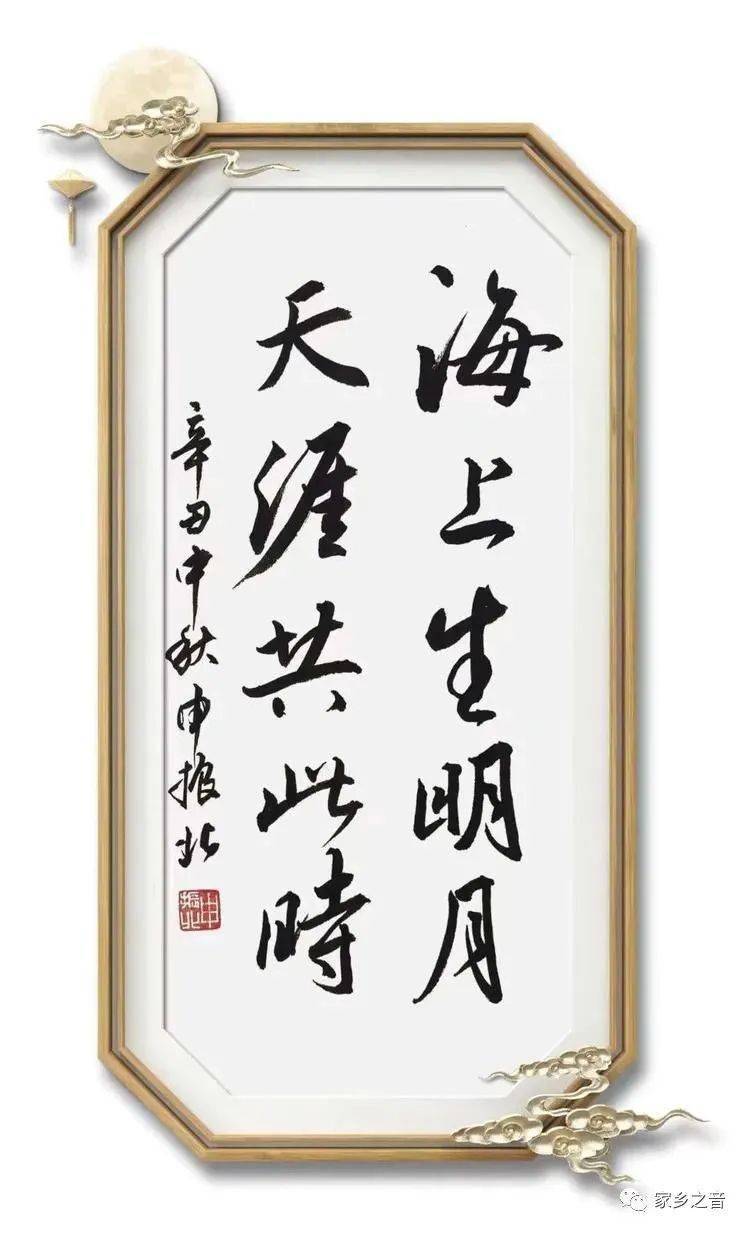 海上生明月
天涯共此時
辛丑中秋申振北
申振北
家乡之音